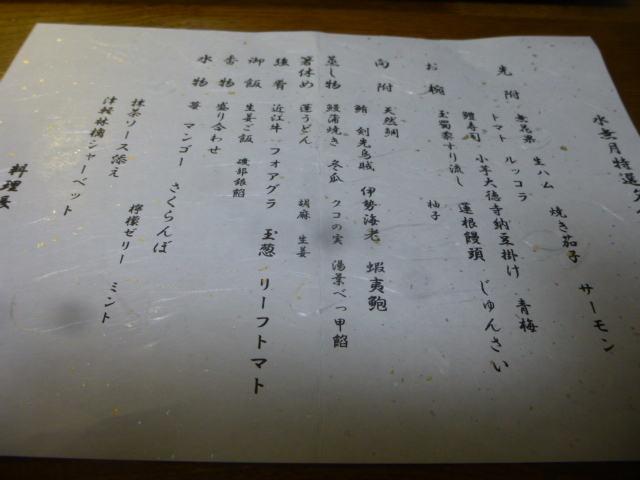 水無月特選
先附 無花果 生ハム 焼き茄子 サーモン
トマト ルッコラ
鱧寿司 小芋大徳寺納豆掛け 青梅
蓮根饅頭 じゅんさい
お椀 玉蜀黍すり流し 柚子
向附 天然鯛
鮪 剣先烏賊 伊勢海老 蝦夷鮑
蒸し物 鰻蒲焼き 冬瓜 クコの実 湯葉べっ甲餡
箸休め 蓮うどん 胡麻 生姜
強肴 近江牛 フォアグラ 玉葱 リーフトマト
御飯 生姜ご飯 磯部銀餡
香物 盛り合わせ
水物 苺 マンゴー さくらんぼ
抹茶ソース添え 檸檬ゼリー ミント
津軽林檎シャーベット
料理長